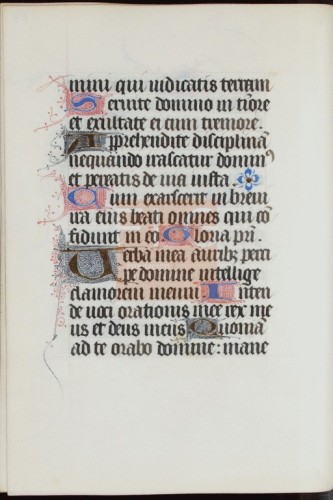 mini qui iudicatis terram
Seruite domino in timore
et exultate ei cum tremore.
Apprehendite disciplinā
nequando irascatur domin⁹
et pereatis de uia iusta.
Cum exarserit in breui
ira eius beati omnes qui cō
fidunt in eo Gloria pri.
Verba mea auribꝫ perci
pe domine intellige
clamorem meum Inten
de uoci orationis mee rex me
us et deus meus Quoniā
ad te orabo domine: mane